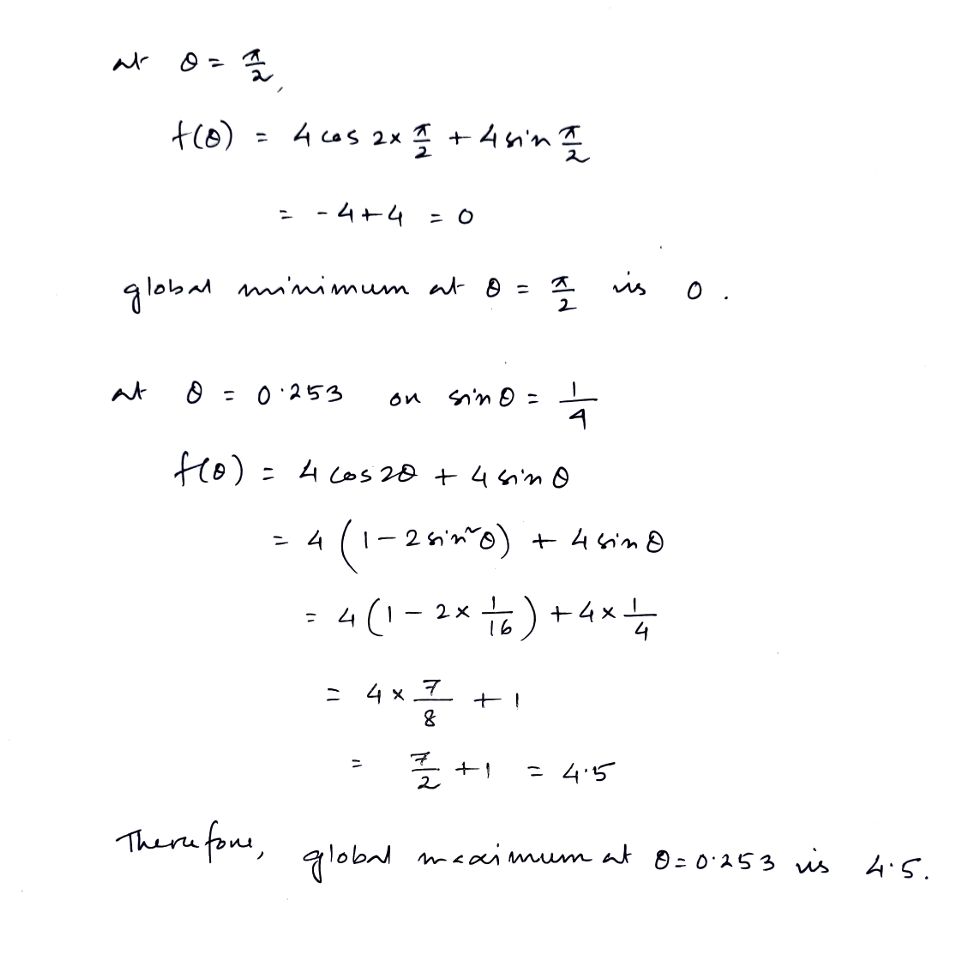 at θ = π/2,
f(θ) = 4 cos 2 × π/2 + 4 sin π/2
= - 4 + 4 = 0
global minimum at θ = π/2 is 0 .
at θ = 0.253 or sin θ = 1/4
f(θ) = 4 cos 2θ + 4 sin θ
= 4 (1 - 2 sin²θ) + 4 sin θ
= 4 (1 - 2 × 1/16) + 4 × 1/4
= 4 × 7/8 + 1
= 7/2 + 1 = 4.5
Therefore, global maximum at θ = 0.253 is 4.5.